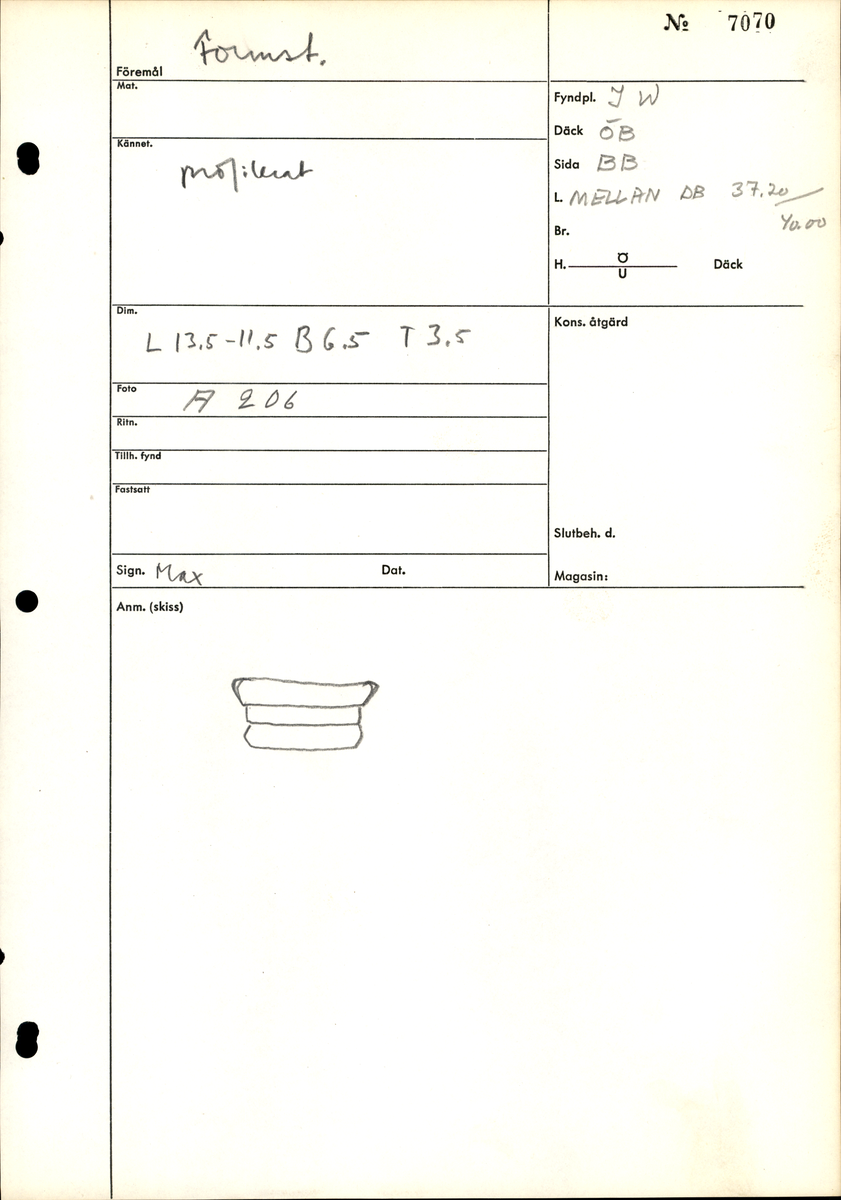 № 7070
Föremål Formst.
Mat.
Fyndpl. I W
Däck ÖB
Kännet.
profilerat
Sida BB
L. MELLAN DB 37.20/
40.00
Br.
H. Ö/U Däck
Dim.
L 13.5-11.5 B 6.5 T 3.5
Kons. åtgärd
Foto A 206
Ritn.
Tillh. fynd
Fastsatt
Slutbeh. d.
Sign. Max Dat.
Magasin:
Anm. (skiss)